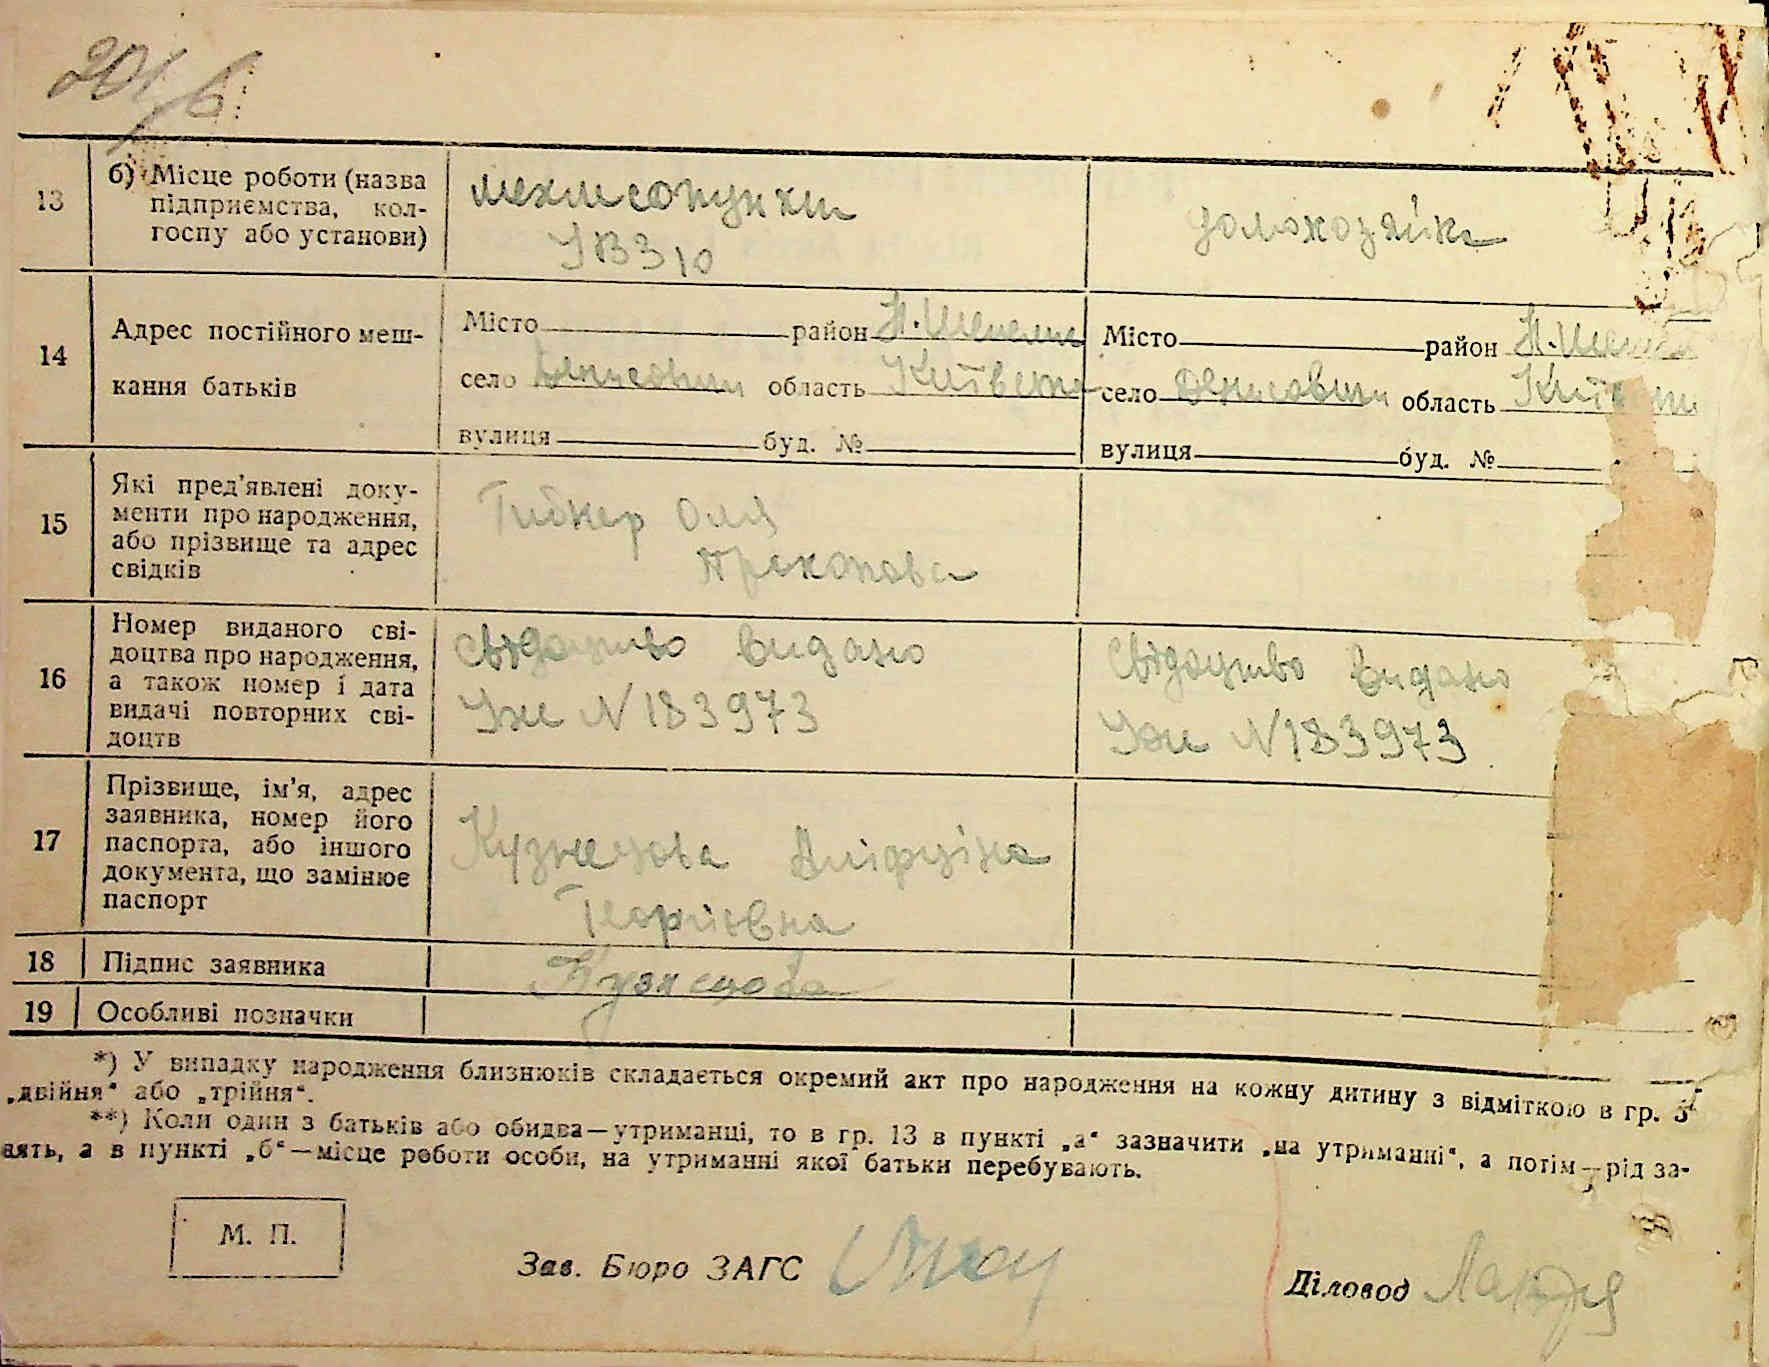 201/6
13 б) Місце роботи (назва
підприємства, кол-
госпу або установи)
мехлісопункт
УВЗ 10
домохозяйка
14 Адрес постійного меш-
кання батьків
Місто район Н.Шепелич
село Денисовичі область Київська
вулиця буд. №
Місто район Н.Шепели
село Денисовичі область Київ
вулиця буд. №
15 Які пред'явлені доку-
менти про народження,
або прізвище та адрес
свідків
Оля
Прокопова
16 Номер виданого сві-
доцтва про народження,
а також номер і дата
видачі повторних сві-
доцтв
свідоцтво видано
Уже N 183973
свідоцтво видано
Уже N 183973
17 Прізвище, ім'я, адрес
заявника, номер його
паспорта, або іншого
документа, що замінює
паспорт
Кузнецова
Георгієвна
18 Підпис заявника
Кузнецова
19 Особливі позначки
*) У випадку народження близнюків складається окремий акт про народження на кожну дитину з відміткою в гр. 3
„двійня“ або „трійня“.
**) Коли один з батьків або обидва—утриманці, то в гр. 13 в пункті „а“ зазначити „на утриманні“, а потім—рід за-
нять, а в пункті „б“—місце роботи особи, на утриманні якої батьки перебувають.
М. П.
Зав. Бюро ЗАГС
Діловод